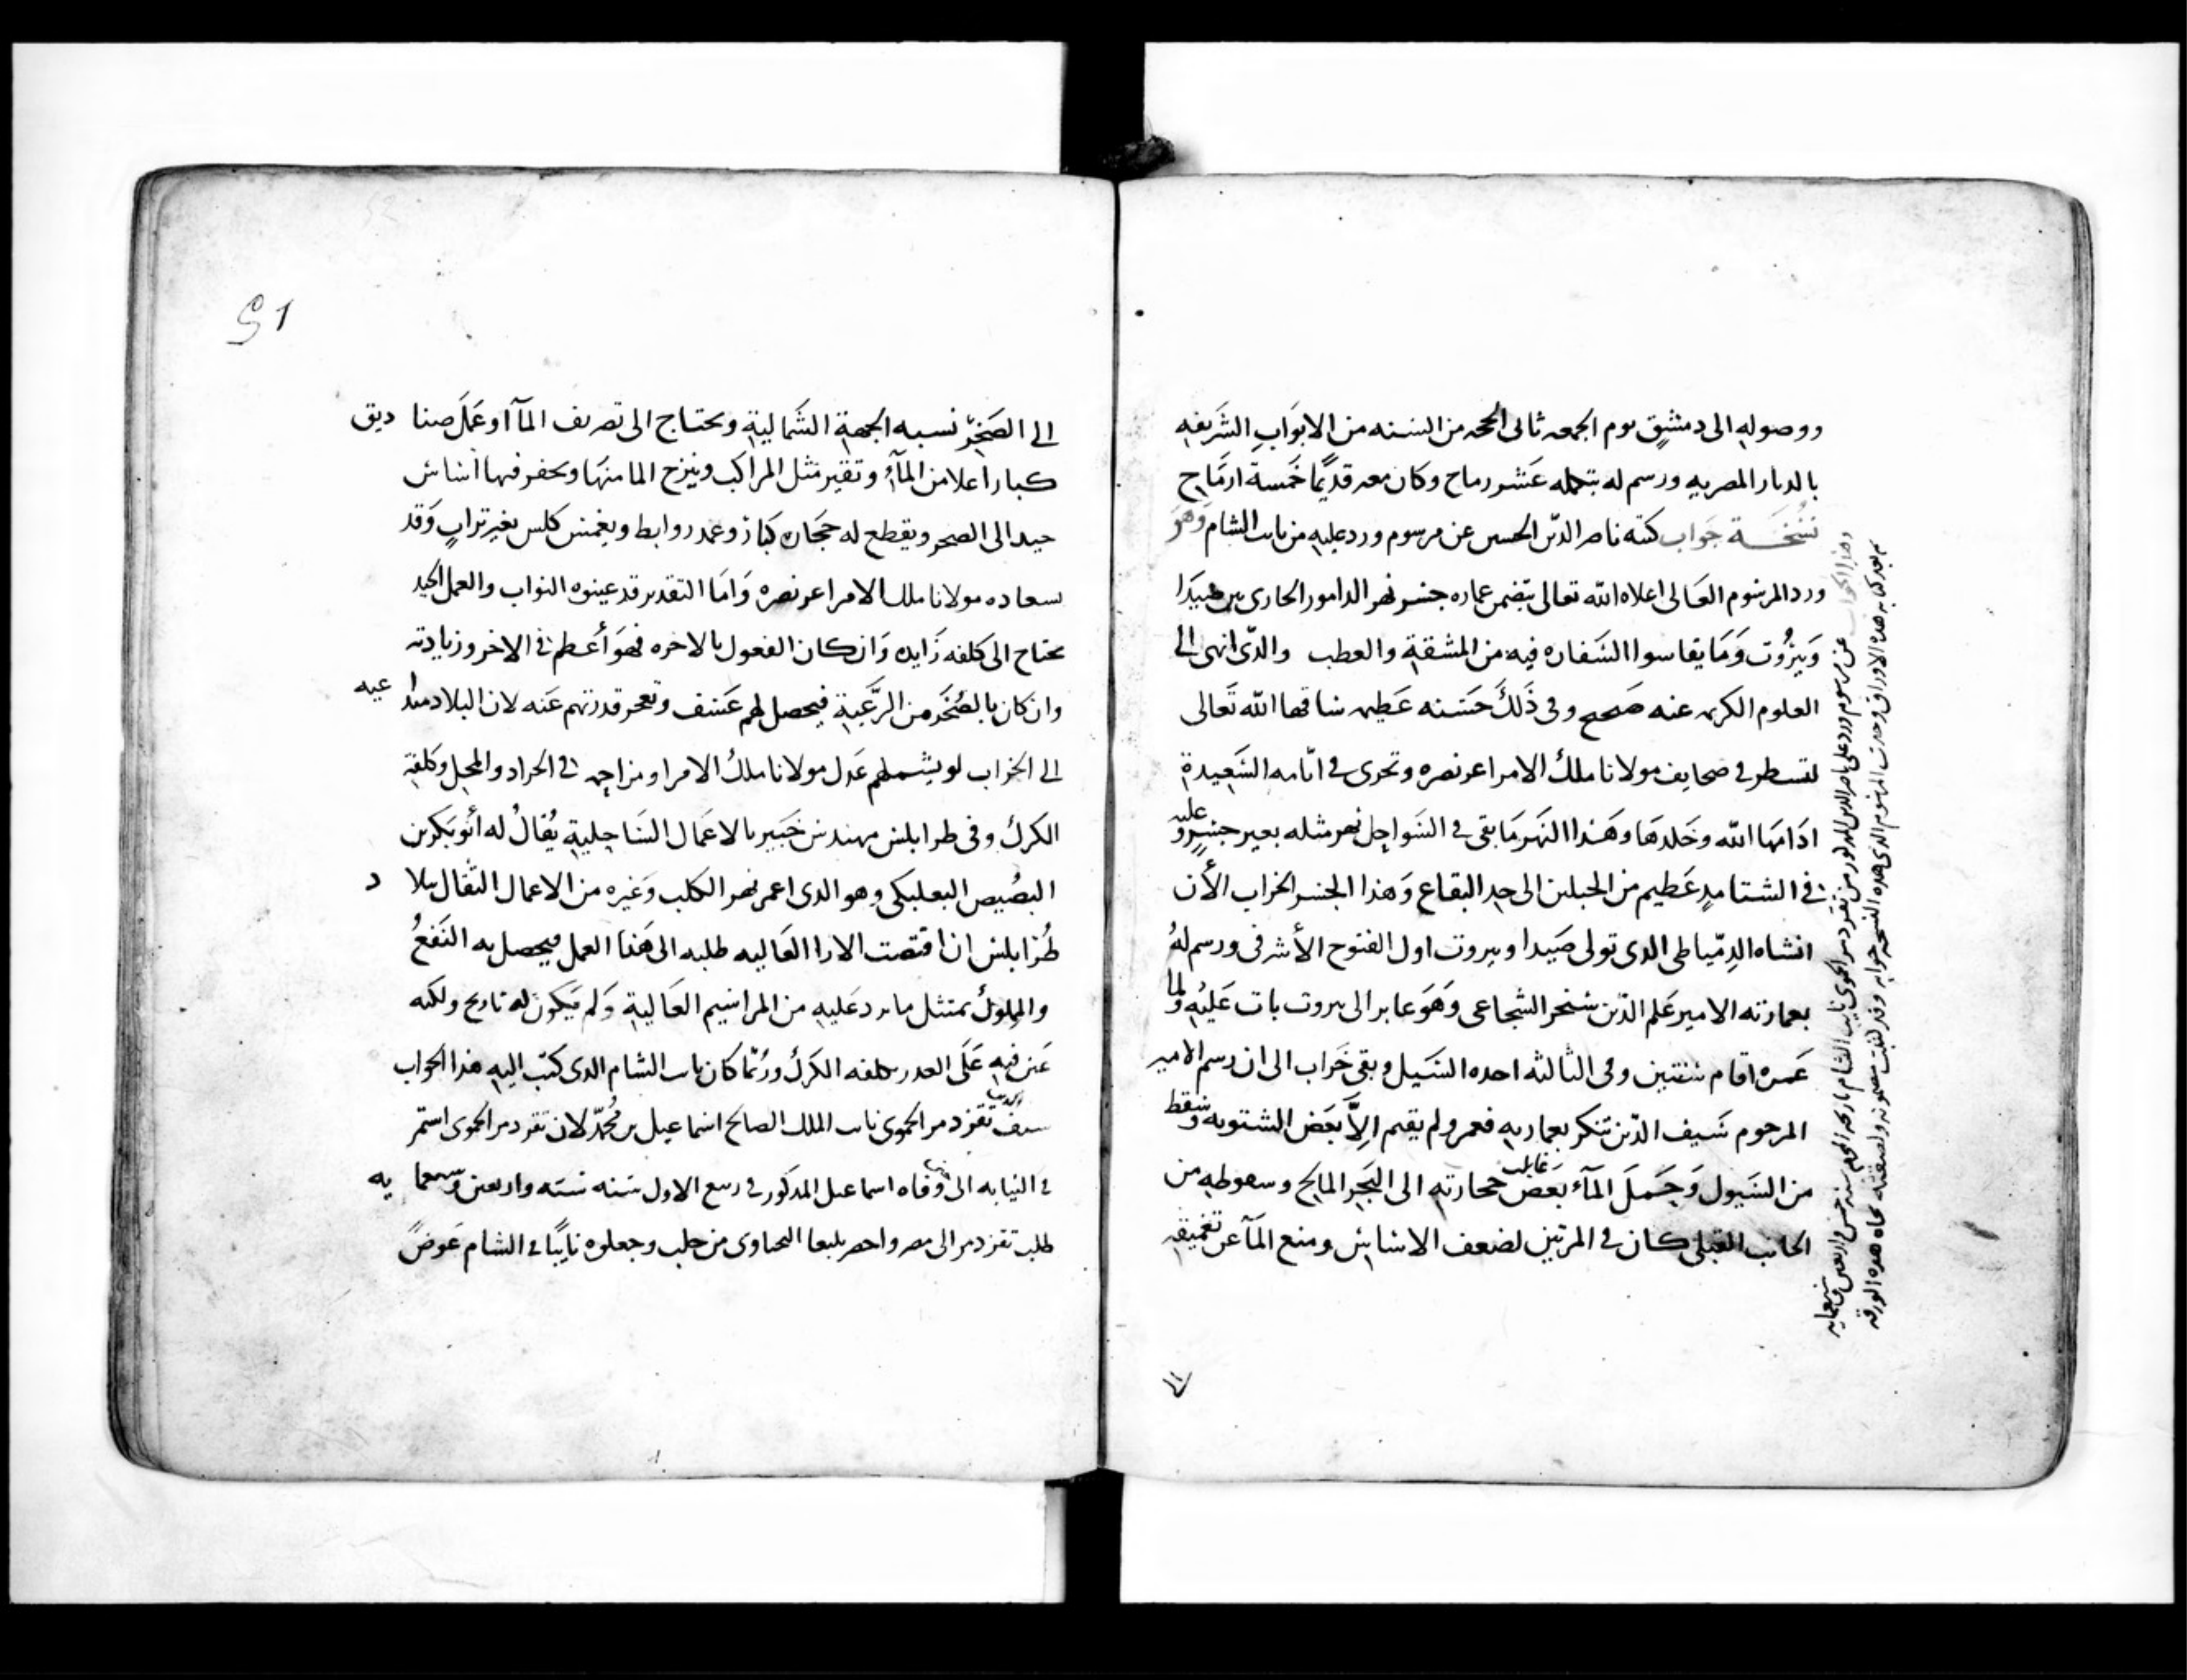 ووصوله الى دمشق يوم الجمعه ثانى الححه من السنه من الابواب الشريفه
بالديار المصريه ورسم له بتحمله عشر رماح وكان معه قديمًا خمسة ارماح
نسخة جواب كتبه ناصر الدين الحسين عن مرسوم ورد عليه من نايب الشام وهو
ورد المرسوم العالى اعلاه الله تعالى يتضمن عماره جسر نهر الدامور الجارى بين صيدا
وبيروت وما يقاسوا السفاره فيه من المشقة والعطب والدى انهى الى
العلوم الكريمه عنه صحيح وفى ذلك حسنه عظيمه ساقها الله تعالى
لتسطر فى صحايف مولانا ملك الامرا عز نصره وتجرى فى ايامه السعيدة
ادامها الله وخلدها وهذا النهر ما بقى فى السواحل نهر مثله بغير جسر وعليه
فى الشتا مد عظيم من الجبلين الى حد البقاع وهذا الجسر الخراب الأن
انشاه الدمياطى الدى تولى صيدا وبيروت اول الفتوح الأشرفى ورسم له
بعمارته الامير علم الدين سنجر الشجاعى وهو عابر الى بيروت بات عليه ولما
عمره اقام سنتين وفى الثالثه اخده السيل وبقى خراب الى ان رسم الامير
المرحوم سيف الدين تنكز بعمارته فعمر ولم يقيم الا بعض الشتويه وسقط
من السيول وحمل الماء بعض حجارته الى البحر المالح وسقوطه من
الجانب القبلى كان فى المرتين لضعف الاساس ومنع الماء عن تغميقه
الى
عن مرسوم ورد على ناصر الدين المدكور من تقزدمر الحموى نايب الشام تاريخه المحرم سنه خمس واربعين وسبعمايه
بعد كتابه هده الاوراق وجدت المرسوم الدى هده النسخه جوابه وقد نقلت مضمونه ولصقته تجاه هده الورقه
51
الى الصخر نسبه الجهة الشمالية ويحتاج الى تصريف الماء او عمل صناديق
كبار اعلا من الماء وتقير مثل المراكب وينزح الما منها ويحفر فيها أساس
جيد الى الصخر ويقطع له حجاره كبار وعمد روابط ويغمس كلس بغير تراب وقد
سعاده مولانا ملك الامرا عز نصره واما التقدير قد عينوه النواب والعمل الجيد
يحتاج الى كلفه زايده وان كان الفعول بالاخره فهو أعظم فى الاجر وزيادته
وان كان بالصخر من الرعية فيحصل لهم عسف وتعجز قدرتهم عنه لان البلاد متداعيه
الى الخراب لو يشملهم عدل مولانا ملك الامرا ومراحمه فى الجراد والمحل وكلفة
الكرك وفى طرابلس مهندس خبير بالاعمال الساحلية يقال له أبو بكر بن
البصيص البعلبكى وهو الدى اعمر نهر الكلب وغيره من الاعمال الثقال ببلاد
طرابلس ان اقتضت الارا العاليه طلبه الى هذا العمل فيحصل به النفع
والمملوك يمتثل ما يرد عليه من المراسيم العالية ولم يكون له تاريخ ولكنه
عين فيه على العدر بكلفه الكرك وربما كان نايب الشام الدى كتب اليه هذا الجواب
سيف الدين تقزدمر الحموى نايب الملك الصالح اسماعيل بن محمد لان تقزدمر الحموى استمر
فى النيابه الى وفاه اسماعيل المدكور فى ربيع الاول سنه سته واربعين وسبعمايه
طلب تقزدمر الى مصر واحضر يلبغا اليحياوى من حلب وجعلوه نايبًا فى الشام عوضً